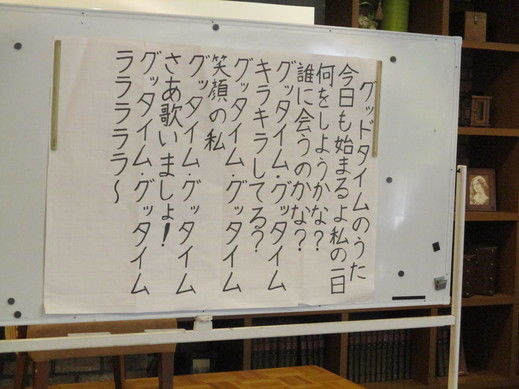 グッドタイムのうた
今日も始まるよ私の一日
何をしようかな?
誰に会うのかな?
グッタイム・グッタイム
キラキラしてる?
グッタイム・グッタイム
笑顔の私
グッタイム・グッタイム
さあ歌いましょ!
グッタイム・グッタイム
ラララララ〜